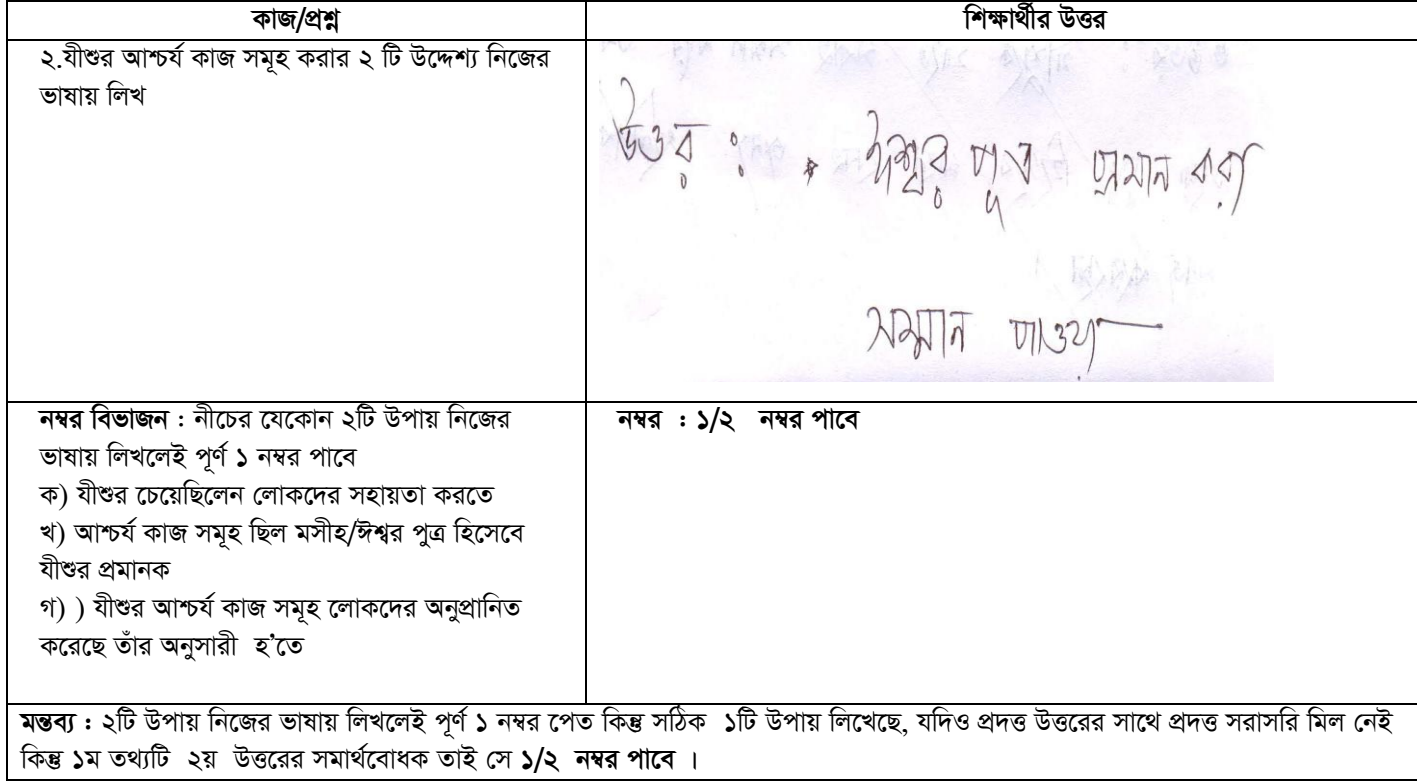 কাজ/প্রশ্ন
শিক্ষার্থীর উত্তর
২.যীশুর আশ্চর্য কাজ সমূহ করার ২ টি উদ্দেশ্য নিজের
ভাষায় লিখ
উত্তর : * ঈশ্বর পুত্র প্রমান করা
সম্মান পাওয়া
নম্বর বিভাজন : নীচের যেকোন ২টি উপায় নিজের
ভাষায় লিখলেই পূর্ণ ১ নম্বর পাবে
ক) যীশুর চেয়েছিলেন লোকদের সহায়তা করতে
খ) আশ্চর্য কাজ সমূহ ছিল মসীহ/ঈশ্বর পুত্র হিসেবে
যীশুর প্রমানক
গ) ) যীশুর আশ্চর্য কাজ সমূহ লোকদের অনুপ্রানিত
করেছে তাঁর অনুসারী হ'তে
নম্বর : ১/২ নম্বর পাবে
মন্তব্য : ২টি উপায় নিজের ভাষায় লিখলেই পূর্ণ ১ নম্বর পেত কিন্তু সঠিক ১টি উপায় লিখেছে, যদিও প্রদত্ত উত্তরের সাথে প্রদত্ত সরাসরি মিল নেই
কিন্তু ১ম তথ্যটি ২য় উত্তরের সমার্থবোধক তাই সে ১/২ নম্বর পাবে ।